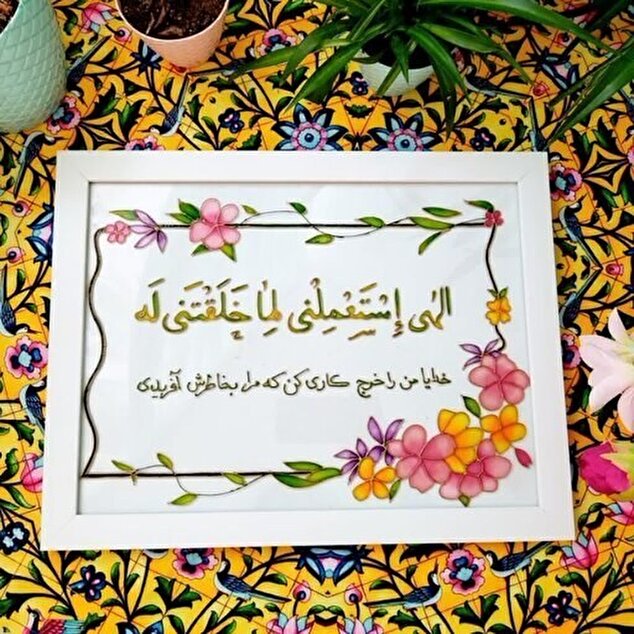 الهی إِسْتَعْمِلْنی لِما خَلَقْتَنی لَه
خدایا من را خرج کاری کن که مرا بخاطرش آفریدی